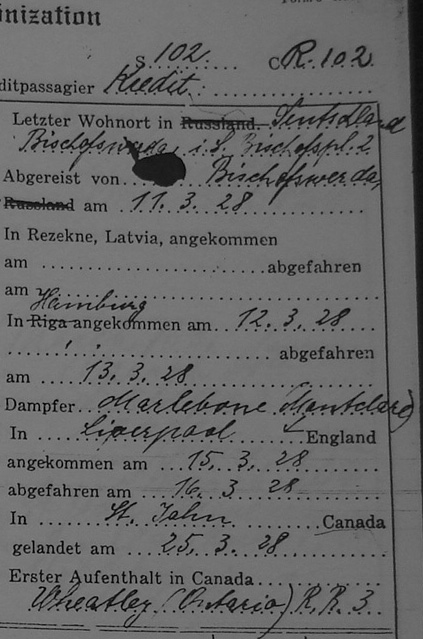 nization
S 102 C R. 102
ditpassagier Kredit
Letzter Wohnort in Russland. Deutschland
Bischofswerda i. S. Bischofspl. 2
Abgereist von Bischofswerda,
Russland am 11. 3. 28
In Rezekne, Latvia, angekommen
am abgefahren
am
Hamburg
In Riga angekommen am 12. 3. 28
abgefahren
am 13. 3. 28
Dampfer Marlebone (Montclare)
In Liverpool England
angekommen am 15. 3. 28
abgefahren am 16. 3. 28
In St. John Canada
gelandet am 25. 3. 28
Erster Aufenthalt in Canada
Wheatley (Ontario) R. R. 3.